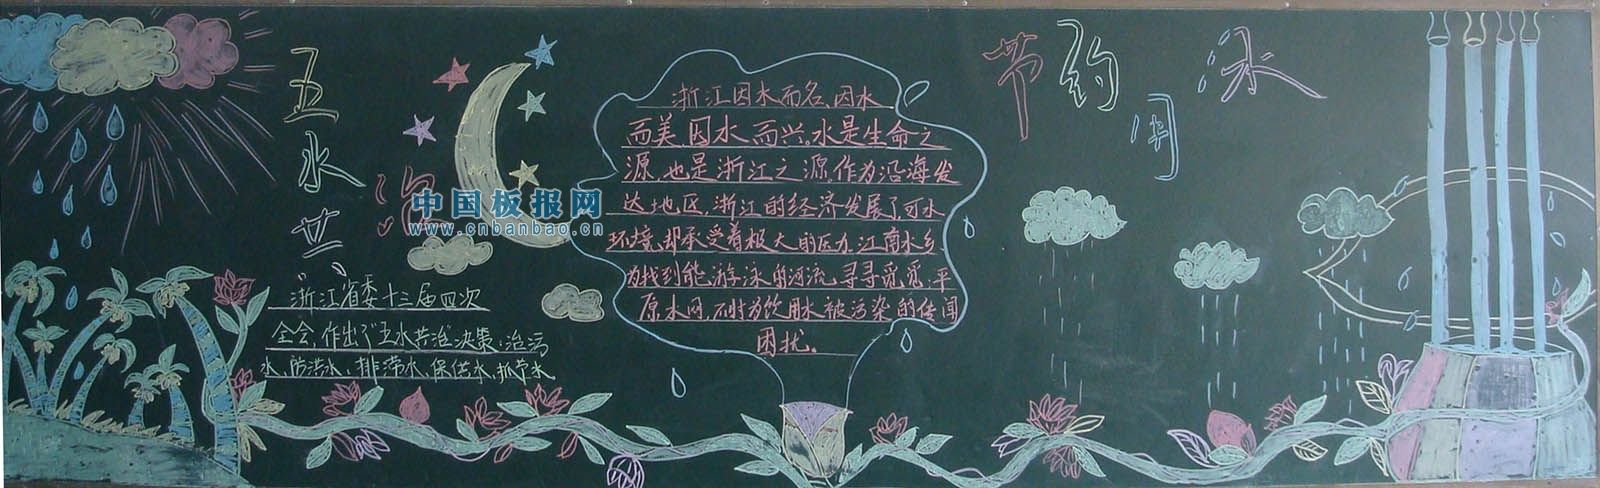 五水共治
中国板报网
www.cnbanbao.cn
浙江省委十三届四次
全会,作出了“五水共治”决策:治污
水、防洪水、排涝水、保供水、抓节水
浙江因水而名、因水
而美、因水而兴。水是生命之
源,也是浙江之源。作为沿海发
达地区,浙江的经济发展了,可水
环境却承受着极大的压力,江南水乡
为找到能游泳的河流寻寻觅觅,平
原水网,不时为饮用水被污染的传闻
困扰。
节约用水